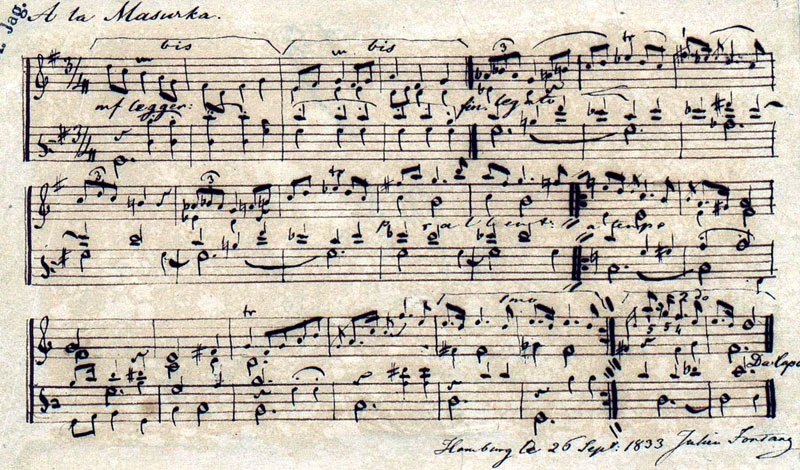 Jag.
A la Masurka.
bis
bis
3/4
mf legger:
fin. legato
3/4
p rallent: a tempo
1mo
2do
Da Capo
Hamburg le 26 Sept: 1833 Julian Fontana